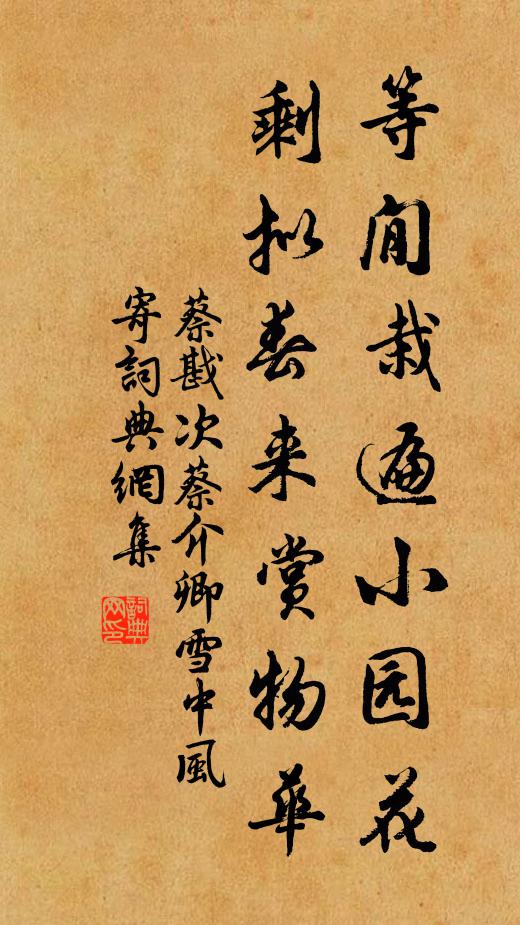 等闲栽遍小园花
剩拟春来赏物華
蔡戡次蔡介卿雪中風
寄詞典網集
詞典
网印